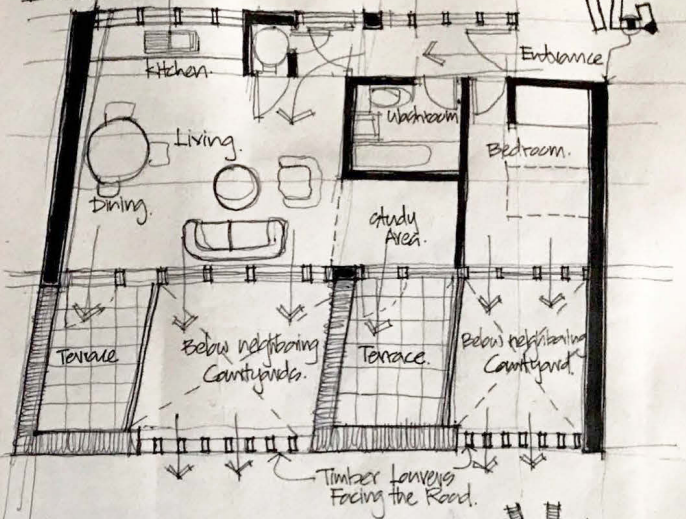 Entrance
Kitchen.
Washroom
Living.
Bedroom.
Dining.
Study
Area.
Terrace
Below neighboring
Courtyards.
Terrace.
Below neighboring
Courtyard.
Timber Louvers
Facing the Road.